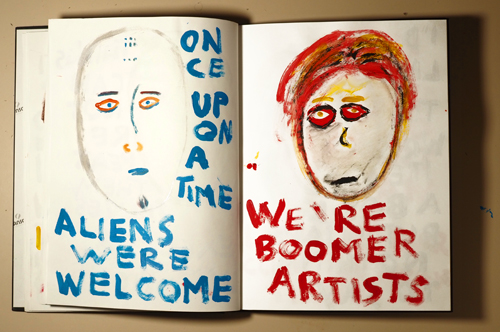 ON
CE
UP
ON
A
TIME
ALIENS
WERE
WELCOME
WE'RE
BOOMER
ARTISTS